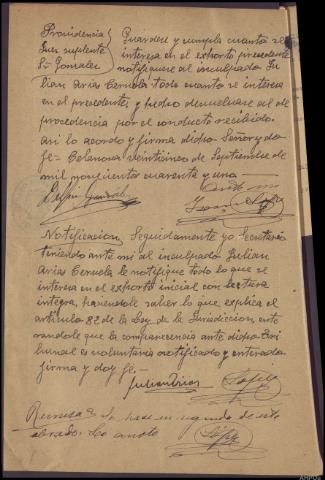 Providencia
Juez suplente
Sr Gonzalez
Guardese y cumpla cuanto se
interesa en el exhorto precedente
notifiquese al inculpado Ju
lian Arias Cernela todo cuanto se interesa
en el precedente, y hecho devuelvase al de
procedencia por el conducto recibido.
Asi lo acordo y firma dicho Señor y doy
fe= Celanova veinticinco de Septiembre de
mil novecientos cuarenta y uno=
Ante mi
Notificacion Seguidamente yo Secretario
teniendo ante mi al inculpado Julian
Arias Cernela le notifique todo lo que se
interesa en el exhorto inicial con lectura
integra, haciendole saber lo que explica el
articulo 82 de la Ley de la Jurisdiccion, ente
randole que la comparecencia ante dicho Tri
bunal es voluntaria notificado y enterado
firma y doy fe=
Julian Arias Lopez
Remesa = Se hace en segundo de este
obrado. Lo anoto
Lopez